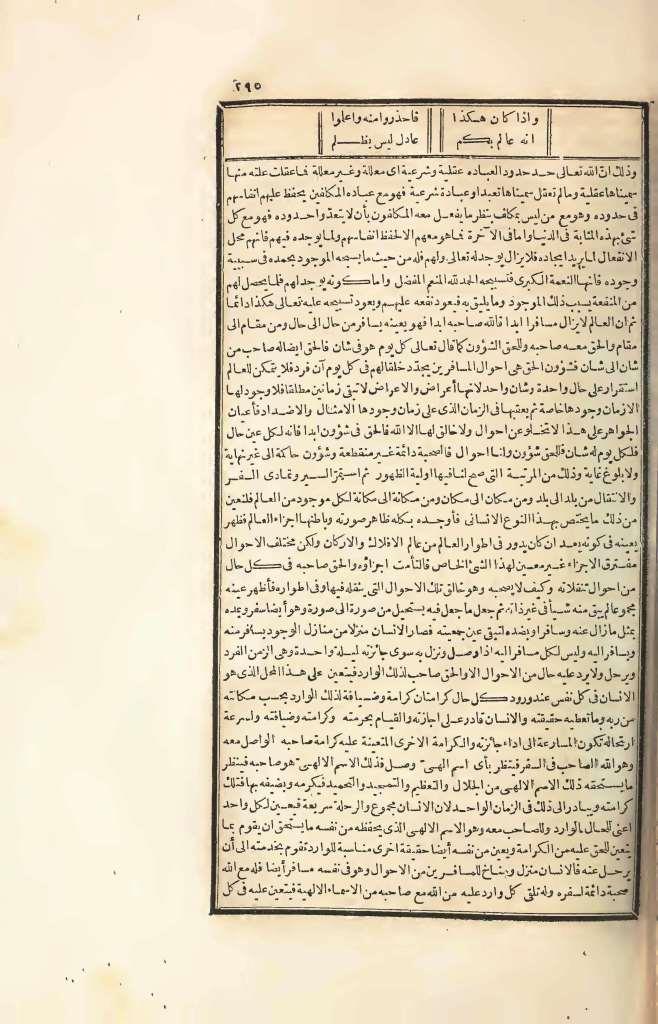 ٢٩٥
واذا كان هكذا فاحذروا منه واعلموا
انه عالم بكم عادل ليس يظلم
وذلك ان الله تعالى حد حدود العباده عقلية وشرعية اى معللة وغير معللة فما عقلت علته منها
سميناها عقلية وما لم تعقل سميناها تعبدا وعبادة شرعية فهو مع عباده المكلفين يحفظ عليهم انفاسهم
فى حدوده وهو مع من ليس بمكلف ينظر ما يفعل معه المكلفون بأن لا يتعدوا حدوده فهو مع كل
شئ بهذه المثابة فى الدنيا واما فى الآخرة فما هو معهم الا لحفظ انفاسهم ولما يوجده فيهم فانهم محل
الانفعال لما يريد ايجاده فلا يزال يوجد له تعالى ولهم فله من حيث ما يسبحه الموجود بحمده فى سببية
وجوده فانها النعمة الكبرى فتسبيحه الحمد لله المنعم المفضل واما كونه يوجد لهم فلما يحصل لهم
من المنفعة بسبب ذلك الموجود وما يليق به فيعود نفعه عليهم ويعود تسبيحه عليه تعالى هكذا دائما
ثم ان العالم لا يزال مسافرا ابدا فالله صاحبه ابدا فهو بعينه يسافر من حال الى حال ومن مقام الى
مقام والحق معه صاحبه وللحق الشؤون كما قال تعالى كل يوم هو فى شان فالحق ايضا له صاحب من
شان الى شان فشؤون الحق هى احوال المسافرين يجدد خلقها لهم فى كل يوم آن فرد فلا يتمكن للعالم
استقرار على حال واحدة وشان واحد لانها أعراض والاعراض لا تبقى زمانين مطلقا فلا وجود لها
الا زمان وجودها خاصة ثم يعقبها فى الزمان الذى على زمان وجودها الامثال والاضداد فأعيان
الجواهر على هذا لا تخلو عن احوال ولا خالق لها الا الله فالحق فى شؤون ابدا فانه لكل عين حال
فلكل يوم له شان فللحق شؤون ولنا احوال فالصحبة دائمة غير منقطعة وشؤون حاكمة الى غير نهاية
ولا بلوغ غاية وذلك من المرتبة التى صح لنا فيها اولية الظهور ثم استمر السير وتمادى السفر
والانتقال من بلد الى بلد ومن مكان الى مكان ومن مكانة الى مكانة لكل موجود من العالم فلنعين
من ذلك ما يختص بهذا النوع الانسانى فأوجده بكله ظاهر صورته وباطنها اجزاء العالم فظهر
بعينه فى كونه بعد ان كان يدور فى اطوار العالم من عالم الافلاك والاركان ولكن مختلف الاحوال
مفترق الاجزاء غير معين لهذا الشئ الخاص فالتأمت اجزاؤه والحق صاحبه فى كل حال
من احوال تنقلاته وكيف لا يصحبه وهو خالق تلك الاحوال التى ينقله فيها وفى اطواره فأظهر عينه
مجموعا لم يبق منه شيأ فى غير ذاته ثم جعل ما جعل فيه يستحيل من صورة الى صورة وهو أيضا سفر ويمده
بمثل ما زال عنه وسافر او بضده لتبقى عين جمعيته فصار الانسان منزلا من منازل الوجود يسافر منه
ويسافر اليه وليس لكل مسافر اليه اذا وصل ونزل به سوى جائزته ليلة واحدة وهى الزمن الفرد
ويرحل ولا يرد عليه حال من الاحوال الا والحق صاحب لذلك الوارد فيتعين على هذا المحل الذى هو
الانسان فى كل نفس عند ورود كل حال كرامتان كرامة وضيافة لذلك الوارد بحسب مكانته
من ربه وما تعطيه حقيقته والانسان قادر على اجازته والقيام بحرمته وكرامته وضيافته ولسرعة
ارتحاله تكون المسارعة الى اداء جائزته والكرامة الاخرى المتعينة عليه كرامة صاحبه الواصل معه
وهو الله الصاحب فى السفر فينظر بأى اسم الهى وصل فذلك الاسم الالهى هو صاحبه فينظر
ما يستحقه ذلك الاسم الالهى من الجلال والتعظيم والتمجيد والتحميد فيكرمه ويضيفه بها فتلك
كرامته ويبادر الى ذلك فى الزمان الواحد لان الانسان مجموع والرحلة سريعة فيعين لكل واحد
اعنى للحال الوارد وللصاحب معه وهو الاسم الالهى الذى يحفظه من نفسه ما يستحق ان يقوم بما
يتعين للحق عليه من الكرامة ويعين من نفسه أيضا حقيقة اخرى مناسبة للوارد تقوم بخدمته الى أن
يرحل عنه فالانسان منزل ومناخ للمسافرين من الاحوال وهو فى نفسه مسافر أيضا فله مع الله
صحبة دائمة لسفره وله تلقى كل وارد عليه من الله مع صاحبه من الاسماء الالهية فيتعين عليه فى كل